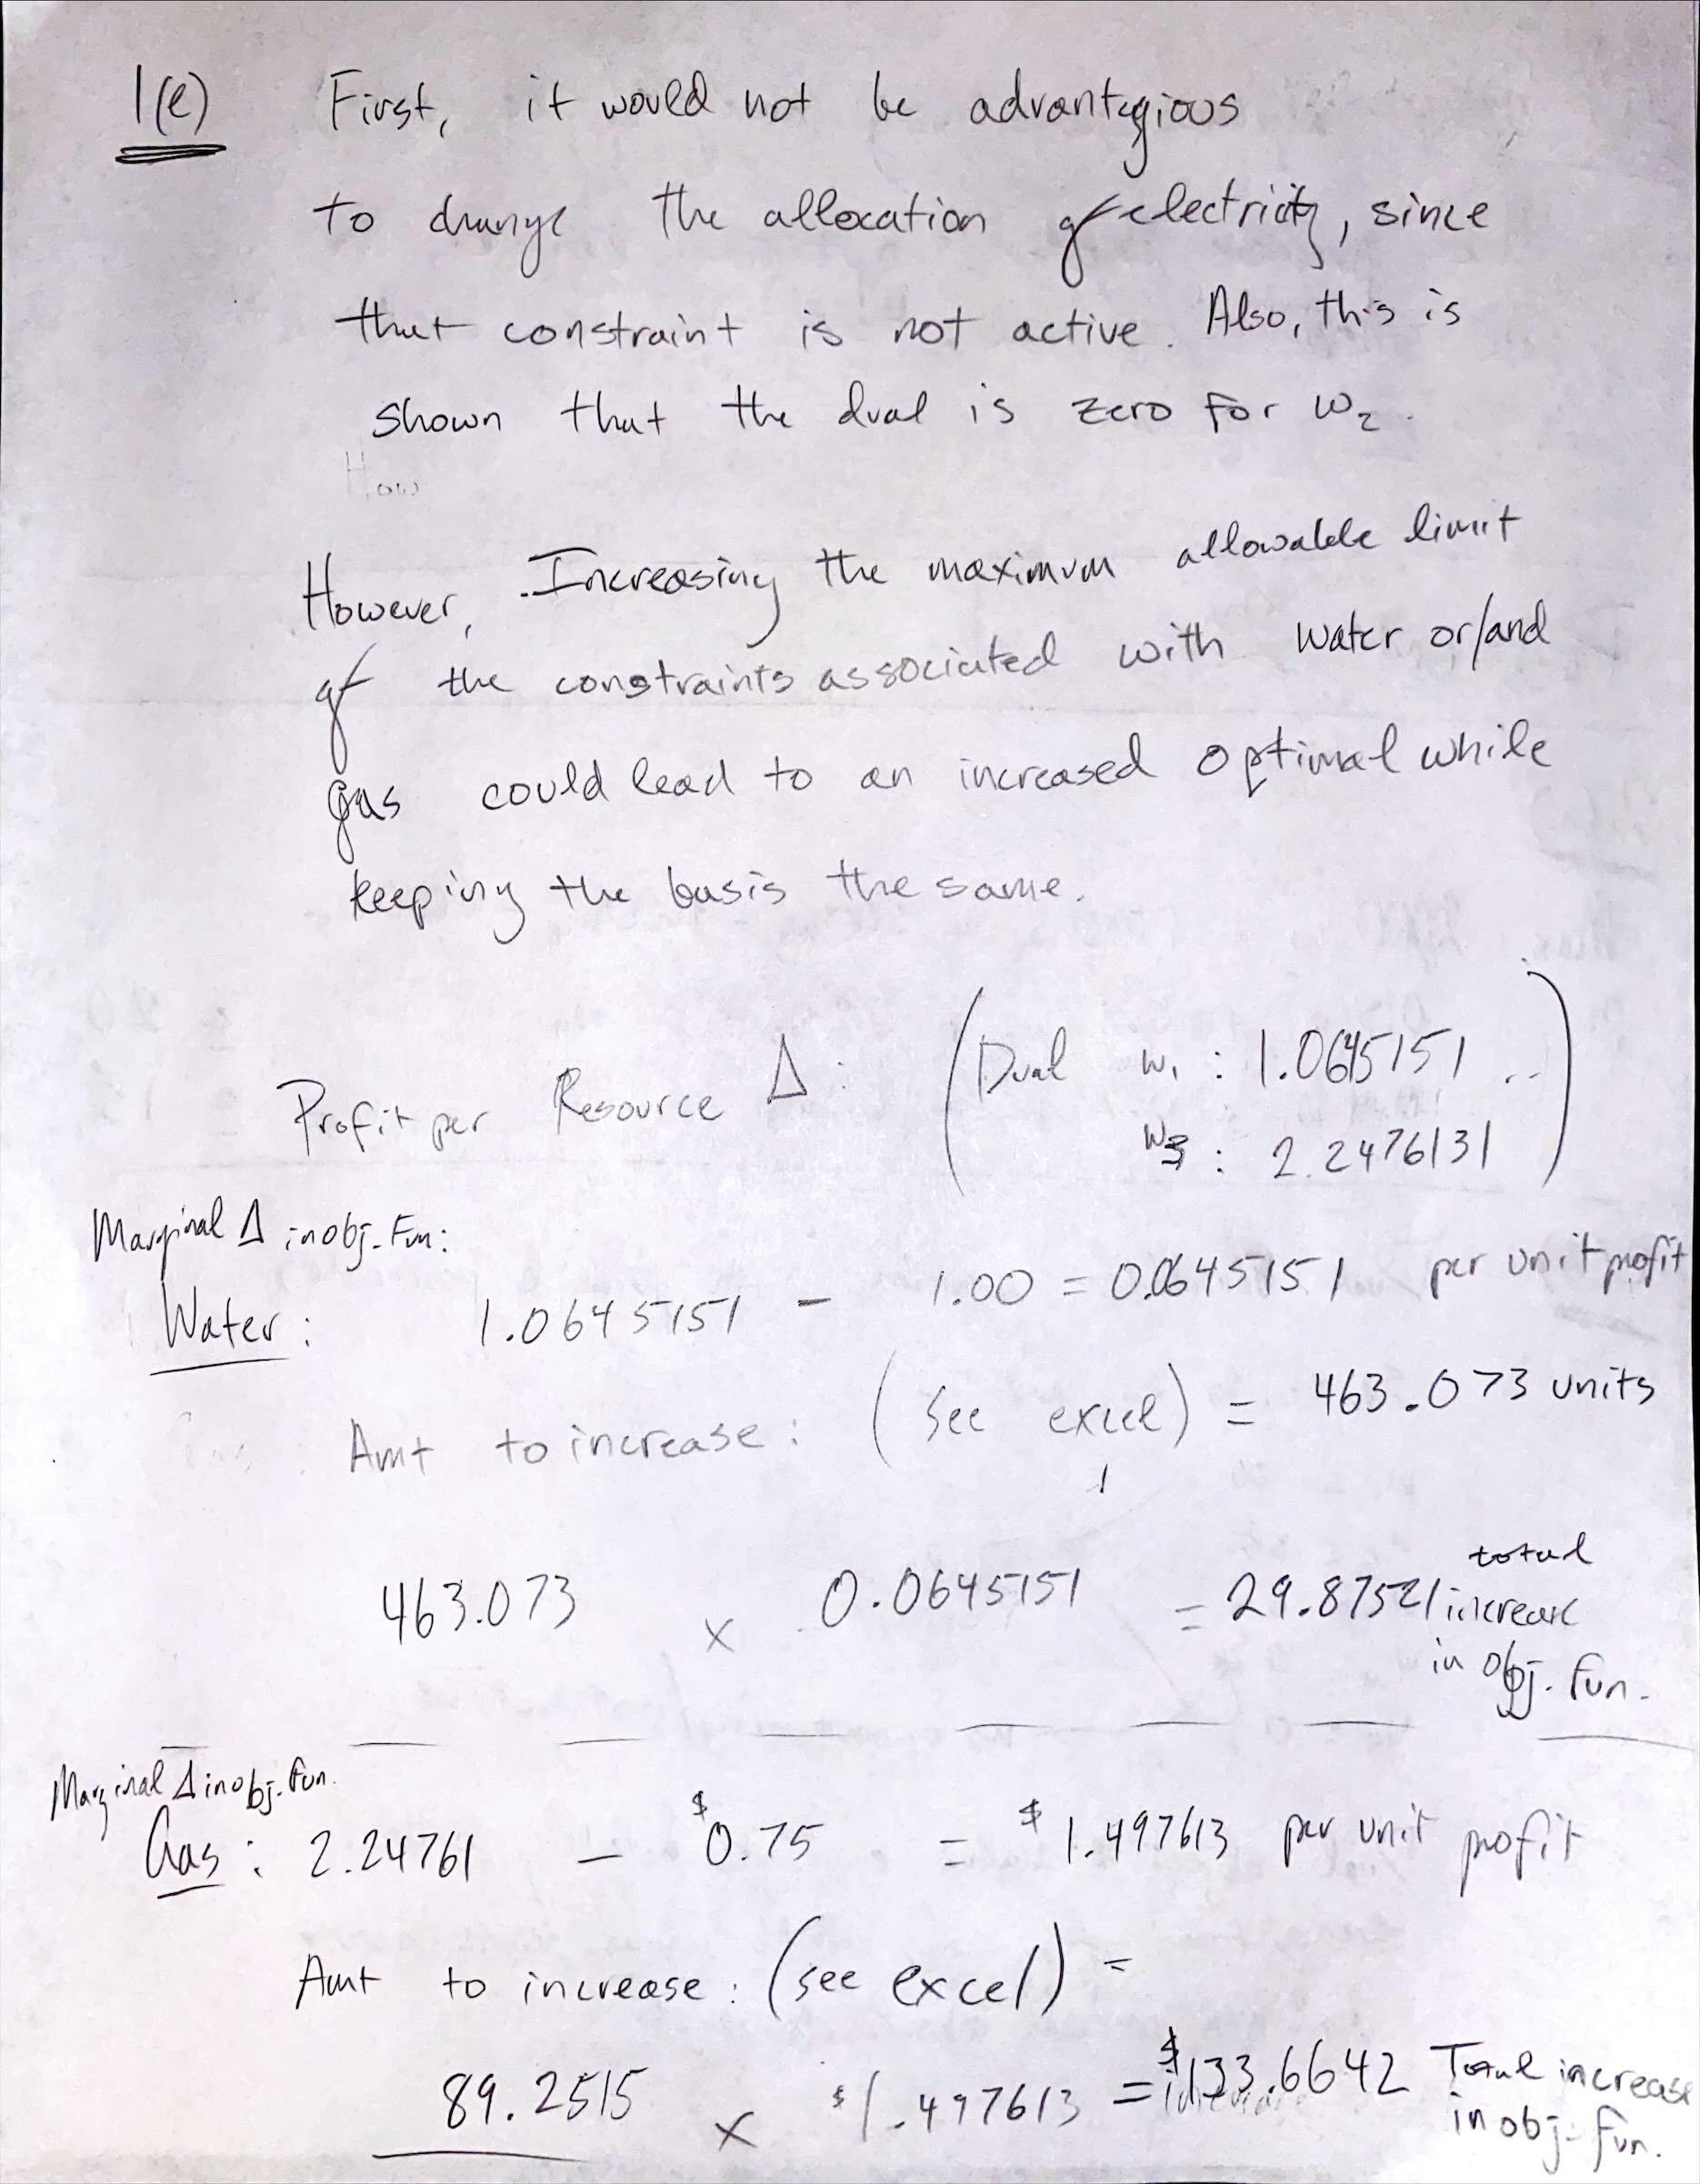 1(e) First, it would not be advantegious
to change the allocation of electricity, since
that constraint is not active. Also, this is
shown that the dual is zero for w₂.
How
However, Increasing the maximum allowable limit
of the constraints associated with water or/and
gas could lead to an increased optimal while
keeping the basis the same.
Profit per Resource Δ: (Dual w₁ : 1.0645151
w₃ : 2.2476131)
Marginal Δ in obj. Fun:
Water: 1.0645151 - 1.00 = 0.0645151 per unit profit
Amt to increase: (see excel) = 463.073 units
463.073 x 0.0645151 = 29.87521 total increase in obj. fun.
Marginal Δ in obj. fun.
Gas: 2.24761 - $0.75 = $1.497613 per unit profit
Amt to increase: (see excel) =
89.2515 x $1.497613 = $133.6642 Total increase in obj. fun.